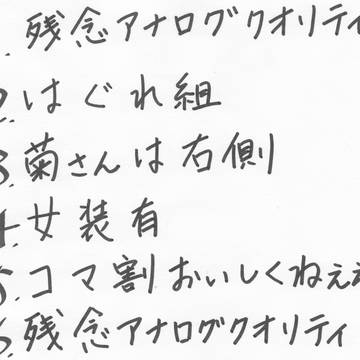 1. 残念アナログクオリティ
2. はぐれ組
3. 菊さんは右側
4. 女装有
5. コマ割おいしくねぇ
6. 残念アナログクオリティ